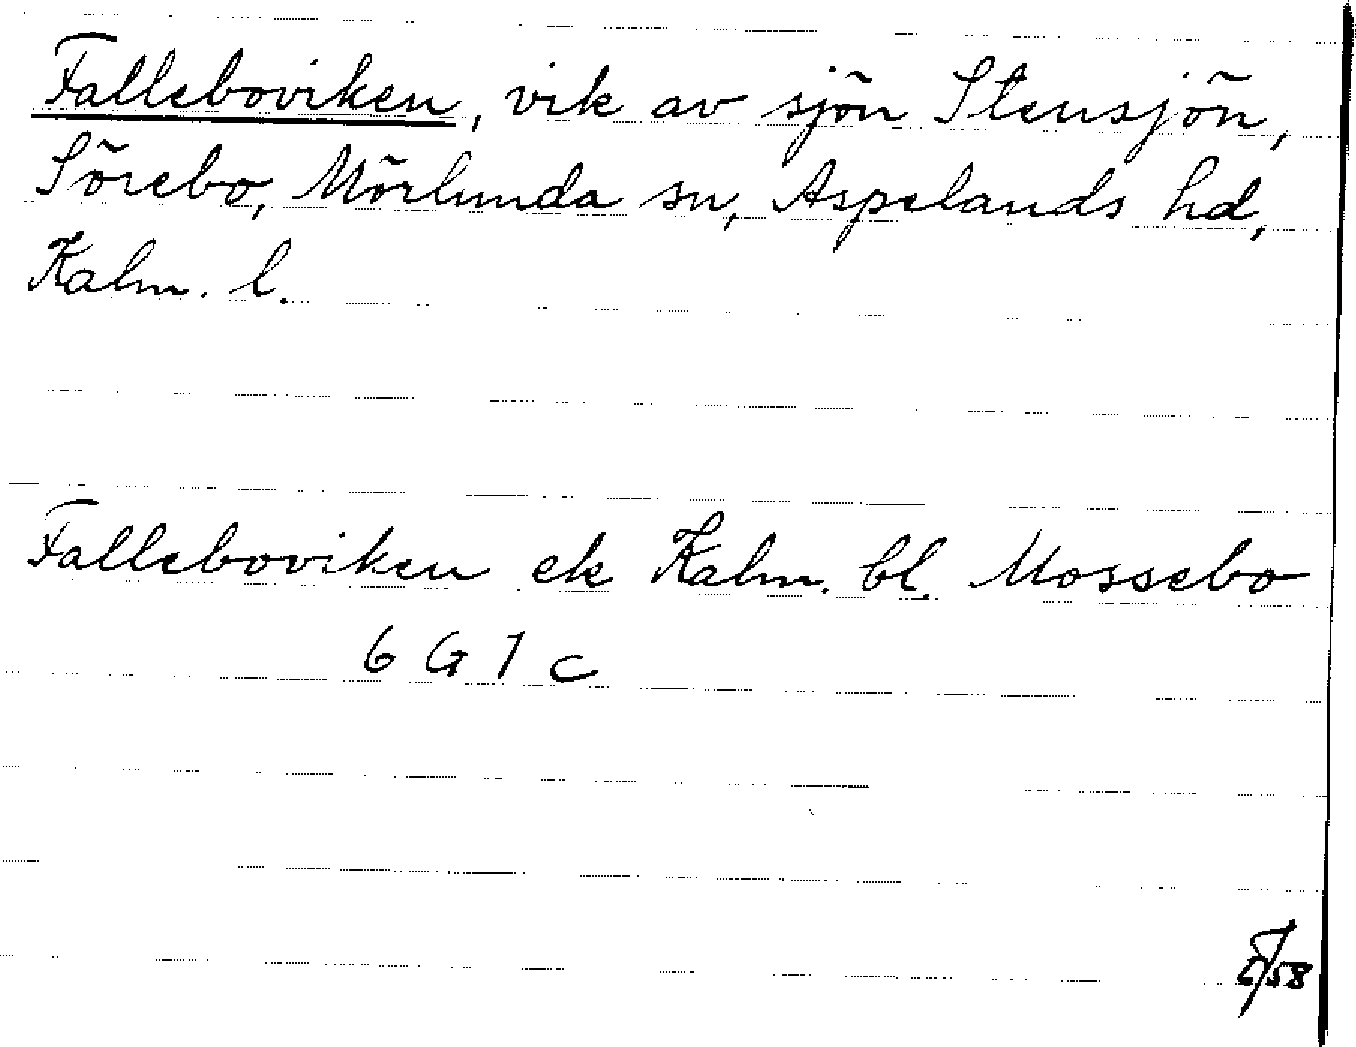 Falleboviken, vik av sjön Stensjön,
Sörebo, Mörlunda sn, Aspelands hd,
Kalm. l.
Falleboviken ek Kalm. bl. Mossebo
6 G 1 c
/58